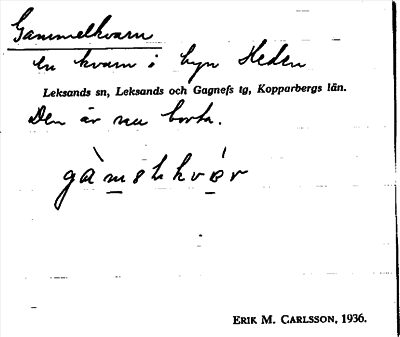 Gammelkvarn
en kvarn i byn Heden
Leksands sn, Leksands och Gagnefs tg, Kopparbergs län.
Den är nu borta.
ERIK M. CARLSSON, 1936.